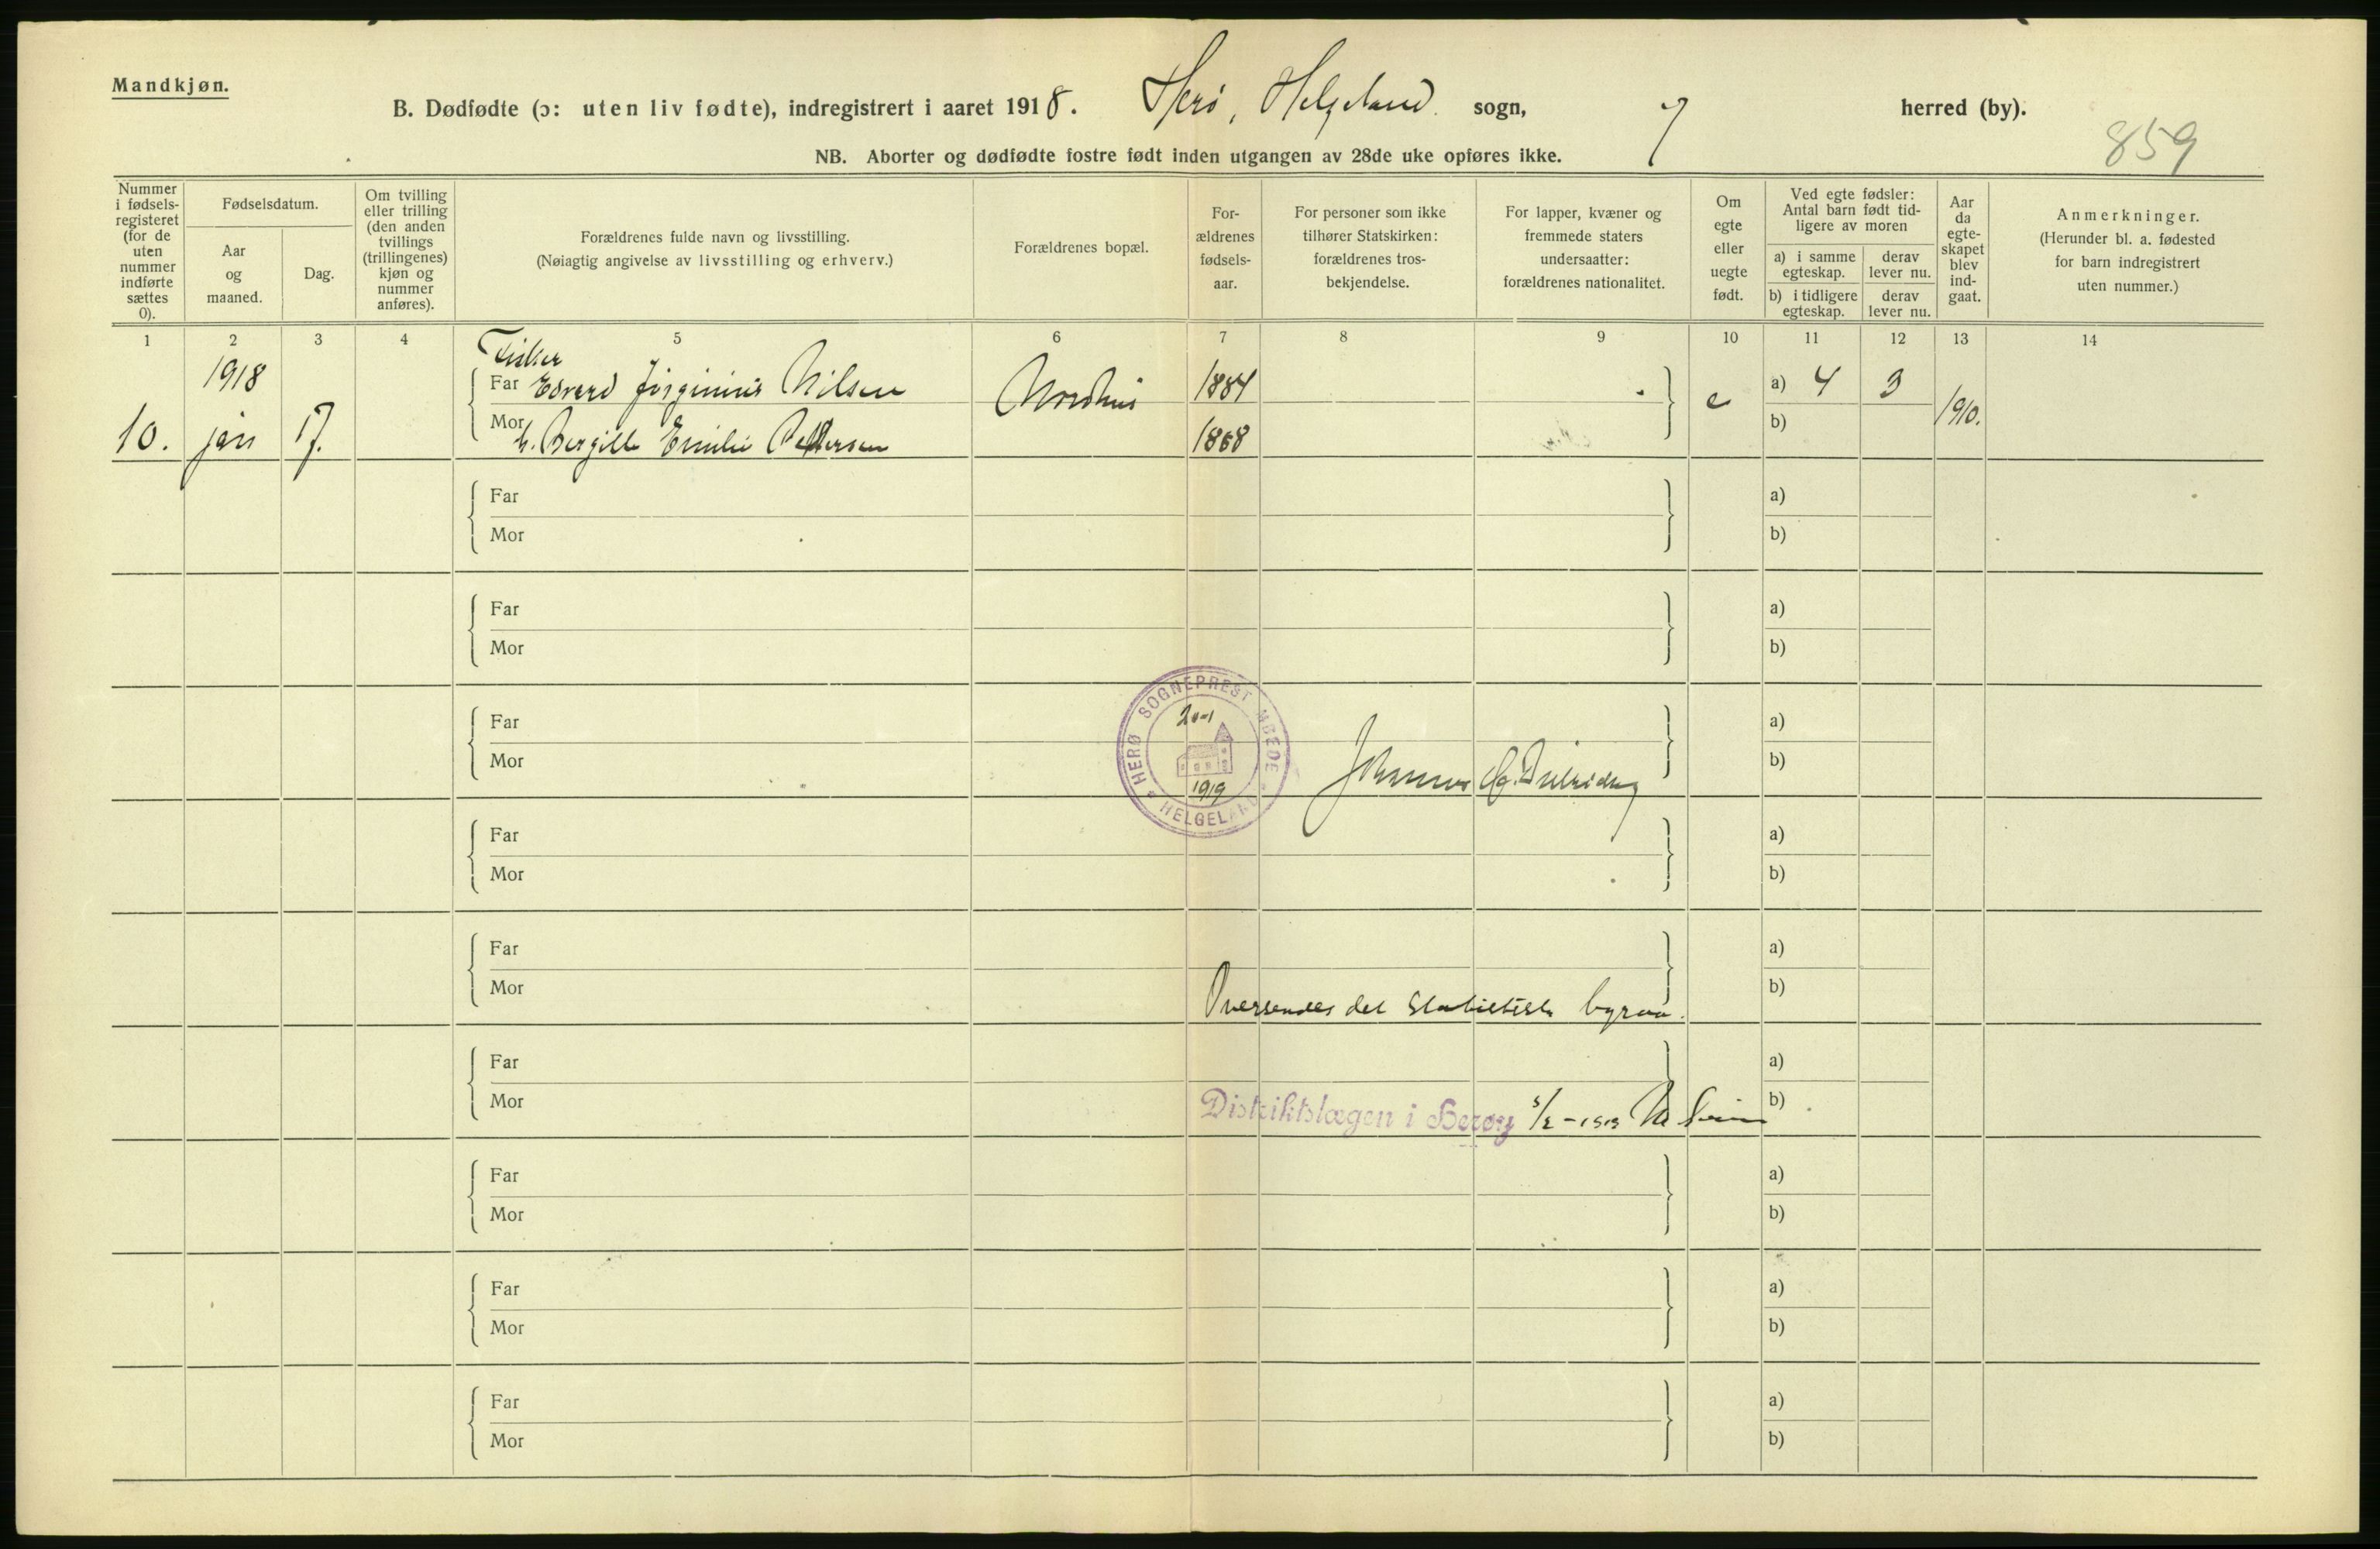 Mandkjøn.
B. Dødfødte (ɔ: uten liv fødte), indregistrert i aaret 1918. Herø, Helgeland. sogn, herred (by).
859
NB. Aborter og dødfødte fostre født inden utgangen av 28de uke opføres ikke.
Nummer
i fødsels-
registeret
(for de
uten
nummer
indførte
sættes
0).
Fødselsdatum.
Aar
og
maaned.
Dag.
Om tvilling
eller trilling
(den anden
tvillings
(trillingenes)
kjøn og
nummer
anføres).
Forældrenes fulde navn og livsstilling.
(Nøiagtig angivelse av livsstilling og erhverv.)
Forældrenes bopæl.
For-
ældrenes
fødsels-
aar.
For personer som ikke
tilhører Statskirken:
forældrenes tros-
bekjendelse.
For lapper, kvæner og
fremmede staters
undersaatter:
forældrenes nationalitet.
Om
egte
eller
uegte
født.
Ved egte fødsler:
Antal barn født tid-
ligere av moren
a) i samme
egteskap.
derav
lever nu.
b) i tidligere
egteskap.
derav
lever nu.
Aar
da
egte-
skapet
blev
ind-
gaat.
Anmerkninger.
(Herunder bl. a. fødested
for barn indregistrert
uten nummer.)
1 2 3 4 5 6 7 8 9 10 11 12 13 14
Fisker
1918 Far Edvard Nilsen 1884 e a) 4 3 1910.
10. jan 17. Mor Emilie Pettersen 1868 b)
Far a)
Mor b)
Far a)
Mor b)
HERØ SOGNEPREST EMBEDE
HELGELAND
20-1
1919
Far a)
Mor Johannes b)
Far a)
Mor b)
Far a)
Mor b)
Oversendes det statistiske byraa.
Far a)
Mor b)
Distriktslægen i Herøy
Far a)
Mor b)
Far a)
Mor b)
Far a)
Mor b)